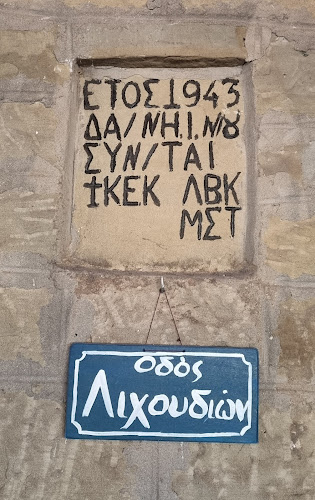 ΕΤΟΣ 1943
ΔΑ/ΝΗ.Ι.Ν/8
ΣΥΝ/ΤΑΙ
‡ΚΕΚ ΛΒΚ
ΜΣΤ
οδὸς
Λιχουδιῶν